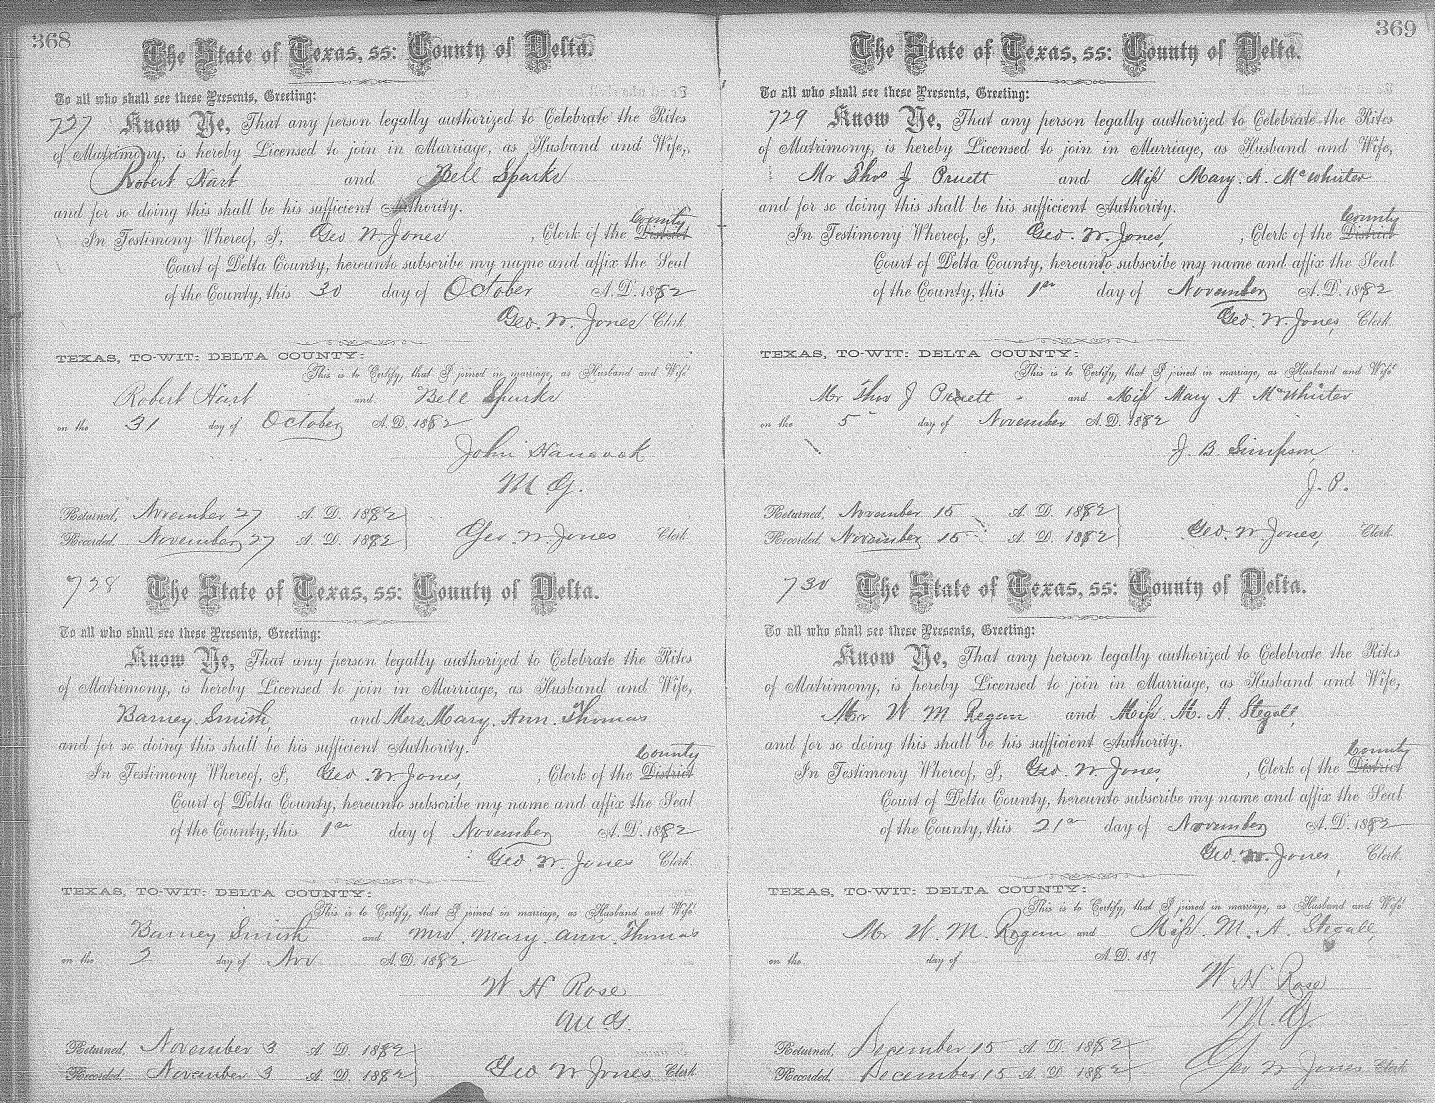 368
The State of Texas, ss: County of Delta.
To all who shall see these Presents, Greeting:
727 Know Ye, That any person legally authorized to Celebrate the Rites
of Matrimony, is hereby Licensed to join in Marriage, as Husband and Wife,
Robert Hart and Bell Sparks
and for so doing this shall be his sufficient Authority.
County
In Testimony Whereof, I, Geo W Jones , Clerk of the District
Court of Delta County, hereunto subscribe my name and affix the Seal
of the County, this 30 day of October A.D. 1882
Geo. W. Jones Clerk
TEXAS, TO-WIT: DELTA COUNTY:
This is to Certify, that I joined in marriage, as Husband and Wife
Robert Hart and Bell Sparks
on the 31 day of October A.D. 1882
John Hancock
M G.
Returned, November 27 A. D. 1882
Recorded November 27 A. D. 1882 Geo. W. Jones Clerk
728 The State of Texas, ss: County of Delta.
To all who shall see these Presents, Greeting:
Know Ye, That any person legally authorized to Celebrate the Rites
of Matrimony, is hereby Licensed to join in Marriage, as Husband and Wife,
Barney Smith, and Mers Mary. Ann. Thomas
and for so doing this shall be his sufficient Authority.
County
In Testimony Whereof, I, Geo. W Jones, , Clerk of the District
Court of Delta County, hereunto subscribe my name and affix the Seal
of the County, this 1st day of November A.D. 1882
Geo W Jones Clerk.
TEXAS, TO-WIT: DELTA COUNTY:
This is to Certify, that I joined in marriage, as Husband and Wife
Barney Smith and Mrs. Mary. Ann. Thomas
on the 2 day of Nov A.D. 1882
W H Rose
M. G.
Returned, November 3 A. D. 1882
Recorded. November 3 A. D. 1882 Geo W Jones Clerk
369
The State of Texas, ss: County of Delta.
To all who shall see these Presents, Greeting:
729 Know Ye, That any person legally authorized to Celebrate the Rites
of Matrimony, is hereby Licensed to join in Marriage, as Husband and Wife,
Mr Thos J Pruett and Miss Mary. A. McWhirter
and for so doing this shall be his sufficient Authority.
County
In Testimony Whereof, I, Geo. W. Jones, , Clerk of the District
Court of Delta County, hereunto subscribe my name and affix the Seal
of the County, this 1st day of November A.D. 1882
Geo. W. Jones, Clerk.
TEXAS, TO-WIT: DELTA COUNTY:
This is to Certify, that I joined in marriage, as Husband and Wife
Mr Thos J Pruett and Miss Mary A McWhirter
on the 5 day of November A.D. 1882
J. B. Simpson
J. P.
Returned, November 15 A. D. 1882
Recorded, November 15 A. D. 1882 Geo. W Jones, Clerk
730 The State of Texas, ss: County of Delta.
To all who shall see these Presents, Greeting:
Know Ye, That any person legally authorized to Celebrate the Rites
of Matrimony, is hereby Licensed to join in Marriage, as Husband and Wife,
Mr W M Regan and Miss M. A. Stegall,
and for so doing this shall be his sufficient Authority.
County
In Testimony Whereof, I, Geo. W. Jones, , Clerk of the District
Court of Delta County, hereunto subscribe my name and affix the Seal
of the County, this 21st day of November A.D. 1882
Geo. W. Jones, Clerk.
TEXAS, TO-WIT: DELTA COUNTY:
This is to Certify, that I joined in marriage, as Husband and Wife
Mr W. M. Regan and Miss. M. A. Stegall,
on the day of A.D. 187
W. H. Rose
M. G.
Returned, December 15 A. D. 1882
Recorded, December 15 A. D. 1882 Geo W Jones Clerk